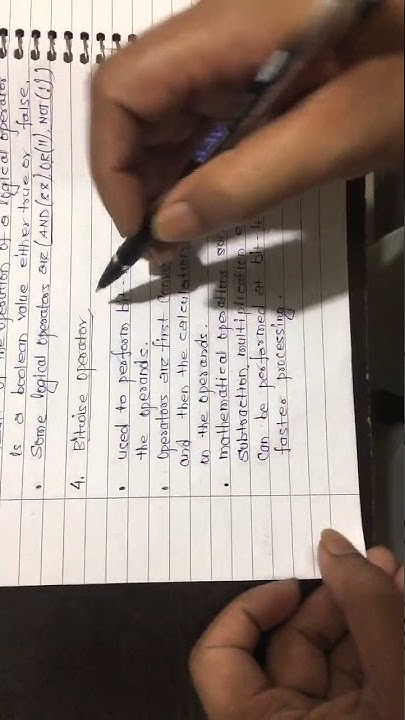 of the operation of a logical operator
is a boolean value either true or false.
• Some logical operators are (AND(&&), OR(||), NOT(!))
4. Bitwise Operator
• used to perform bit-
the operands.
• Operators are first
and then the calculation
on the operands.
• mathematical operations
subtraction, multiplication
can be performed at bit-
faster processing.